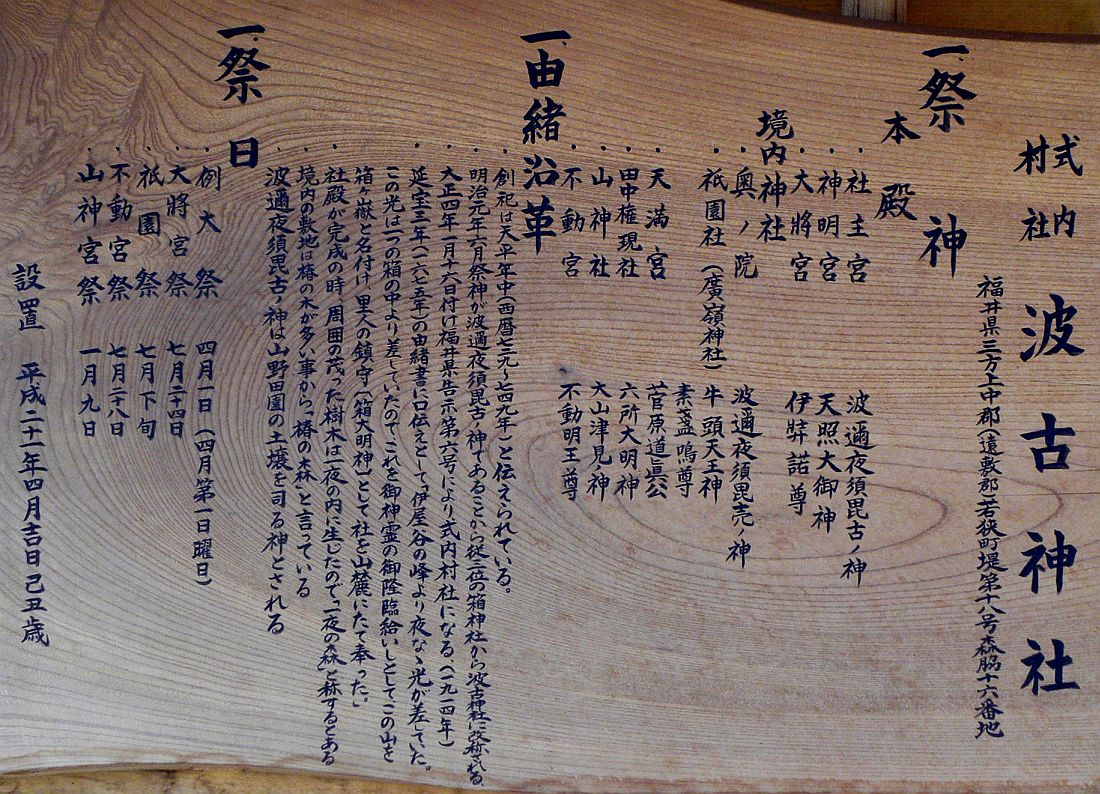 式内
村社
波古神社
福井県三方上中郡(遠敷郡)若狭町堤第十八号森脇十六番地
一、祭神
本殿
・社主宮 波邇夜須毘古ノ神
・神明宮 天照大御神
・大将宮 伊弉諾尊
境内神社
・奥ノ院 波邇夜須毘売ノ神
・祇園社(廣嶺神社) 牛頭天王神
素盞嗚尊
・天満宮 菅原道真公
・田中権現社 六所大明神
・山神社 大山津見ノ神
・不動宮 不動明王尊
一、由緒沿革
・創祀は天平年中(西暦七二九〜七四九年)と伝えられている。
・明治元年六月祭神が波邇夜須毘古ノ神であることから従三位の箱神社から波古神社に改称される、
・大正四年一月十六日付け福井県告示第六号により式内村社になる、(一九一四年)
・延宝三年(一六七五年)の由緒書に口伝えとして、伊屋谷の峰より夜なゝ光が差していた。
この光は一つの箱の中より差していたのでこれを御神霊の御降臨給いしとして、この山を
箱ヶ嶽と名付け、里人の鎮守(箱大明神)として社を山麓にたて奉った。」
・社殿が完成の時、周囲の茂った樹木は一夜の内に生じたので「一夜の森」と称するとある
・境内の敷地は椿の木が多い事から「椿の森」と言っている
・波邇夜須毘古ノ神は山野田園の土壌を司る神とされる
一、祭日
・例大祭 四月一日(四月第一日曜日)
・大將宮祭 七月二十四日
・祇園祭 七月下旬
・不動宮祭 七月二十八日
・山神宮祭 一月九日
設置 平成二十一年四月吉日己丑歳